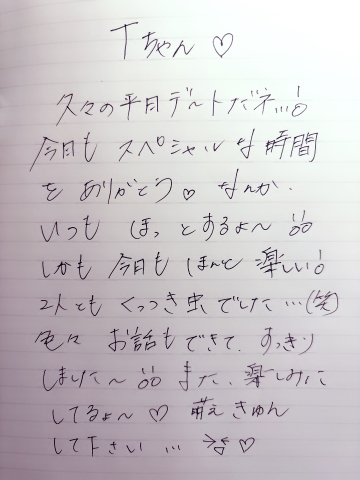 Tちゃん♡
久々の平日デートだネ...!
今日もスペシャルな時間
をありがとう♡ なんか、
いつも ほっとするよ〜!!
しかも今日もほんと楽しい!
2人ともくっつき虫でした…(笑)
色々お話もできて、すっきり
しました〜!! また、楽しみに
してるよ〜♡ 萌えきゅん
して下さい…♡